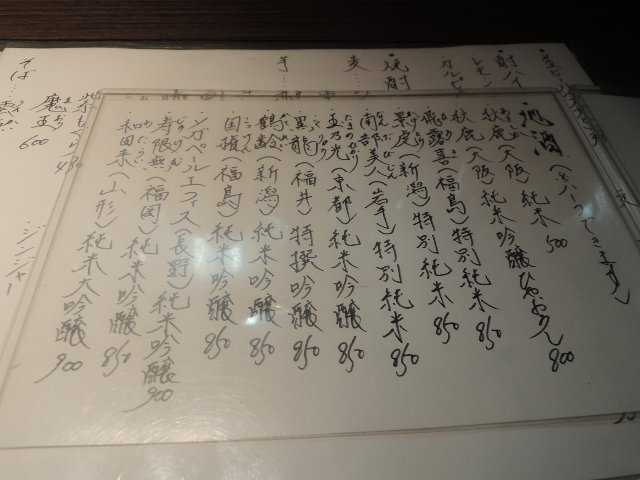 地酒（※ハーフできます）
秋鹿（大阪）純米 500
秋鹿（大阪）純米吟醸ひやおろし 800
飛露喜（福島）特別純米 850
景虎（新潟）特別純米 850
南部美人（岩手）特別純米 850
玉乃光（京都）純米吟醸 850
黒龍（福井）特撰吟醸 850
鶴齢（新潟）純米吟醸 850
国権（福島）純米吟醸 850
ソガペールエフィス（長野）純米吟醸 900
寿限無（福岡）純米吟醸 850
和田来（山形）純米大吟醸 900
酎ハイ
レモン
カルピ
・焼酎
麦
芋
そば
魔王 600
ジンジャー